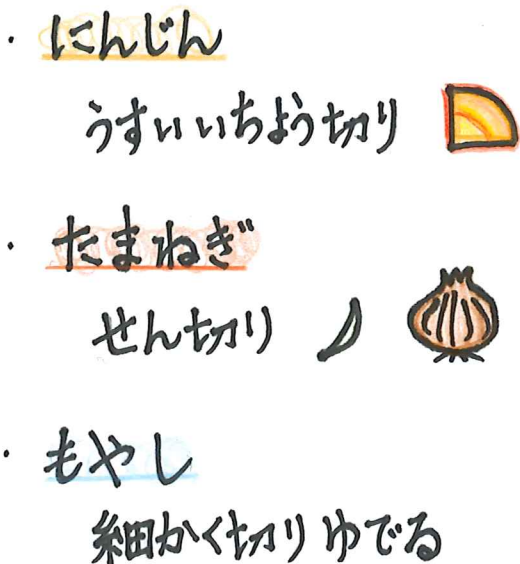 ・にんじん
うすいいちょう切り
・たまねぎ
せん切り
・もやし
細かく切りゆでる